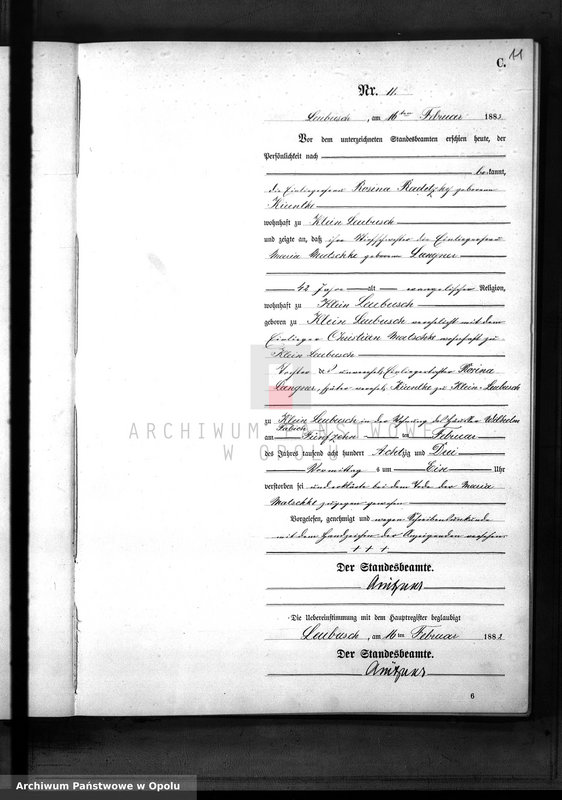 C. 11
Nr. 11.
Leubusch, am 16ten Februar 1883
Vor dem unterzeichneten Standesbeamten erschien heute, der
Persönlichkeit nach
bekannt,
die Einliegerfrau Rosina Radetzky geborene
Kiuntke
wohnhaft zu Klein Leubusch
und zeigte an, daß ihre Stiefschwester die Einliegerfrau
Maria Matschke geborene Langner
42 Jahre alt evangelischer Religion,
wohnhaft zu Klein Leubusch
geboren zu Klein Leubusch verehelicht mit dem
Einlieger Christian Matschke wohnhaft zu
Klein Leubusch
Tochter der Einliegertochter Rosina
Langner, später verehel. Kiuntke zu Klein-Leubusch
zu Klein Leubusch in der Wohnung des Wilhelm
am Fünfzehn ten Februar
des Jahres tausend acht hundert Achtzig und Drei
Vormittag s um Ein Uhr
verstorben sei und erklärte bei dem Tode der Maria
Matschke zugegen gewesen
Vorgelesen, genehmigt und wegen Schreibensunkunde
mit dem Handzeichen der Anzeigenden versehen.
+ + +
Der Standesbeamte.
Die Uebereinstimmung mit dem Hauptregister beglaubigt
Leubusch, am 16ten Februar 1883
Der Standesbeamte.
6
ARCHIWUM PAŃSTWOWE
W OPOLU
Archiwum Państwowe w Opolu